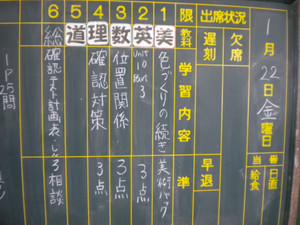 1月22日金曜日
当番 日直
給食
出席状況
欠席
遅刻
早退
限 教科 学習内容 準
1 美 色づくりの続き 美術パック
2 英 Unit 10 Part 3 3点
3 数 位置関係 3点
4 理 確認対策 3点
5 道
6 総 確認テスト計画表
3相談